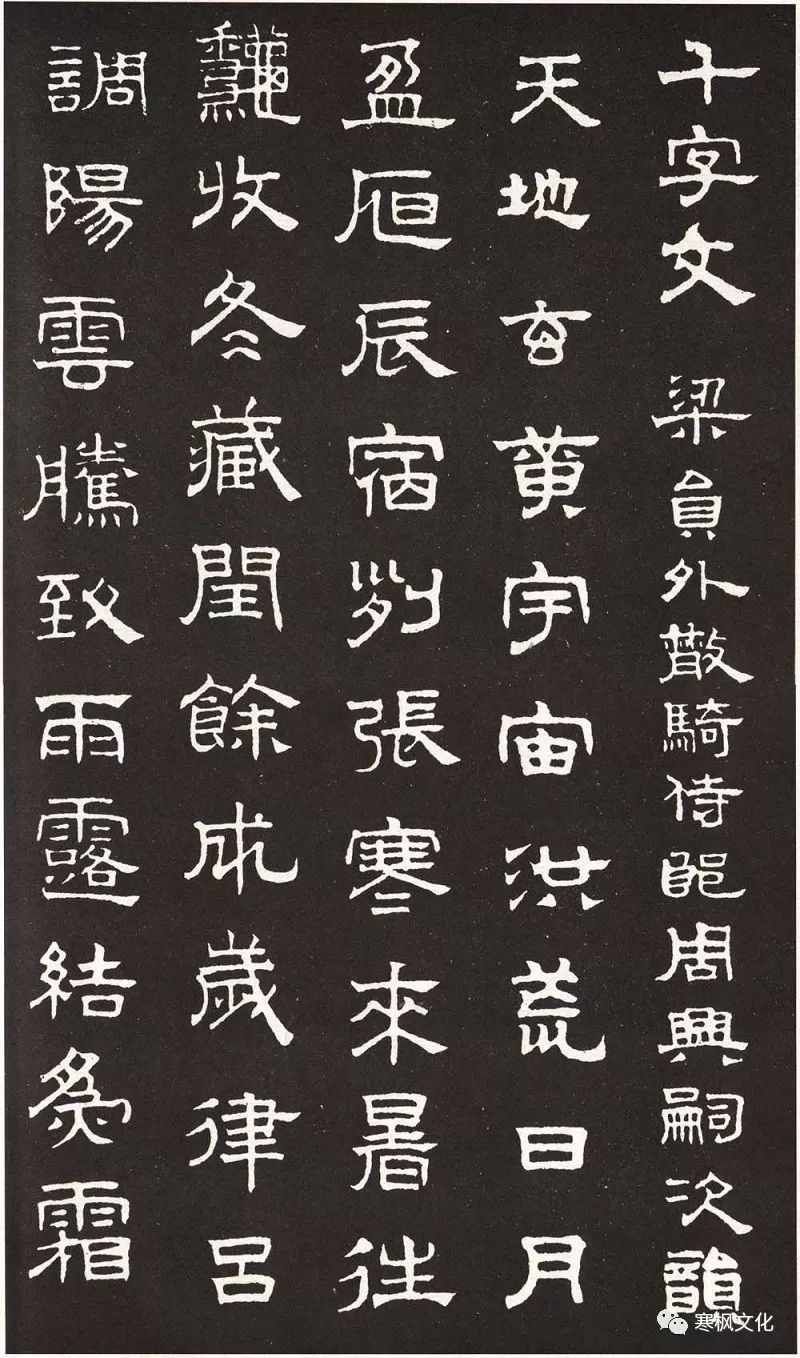 千字文 梁員外散騎侍郎周興嗣次韻
天地玄黃宇宙洪荒日月
盈昃辰宿列張寒來暑往
龝收冬藏閏餘成歲律呂
調陽雲騰致雨露結為霜
寒枫文化